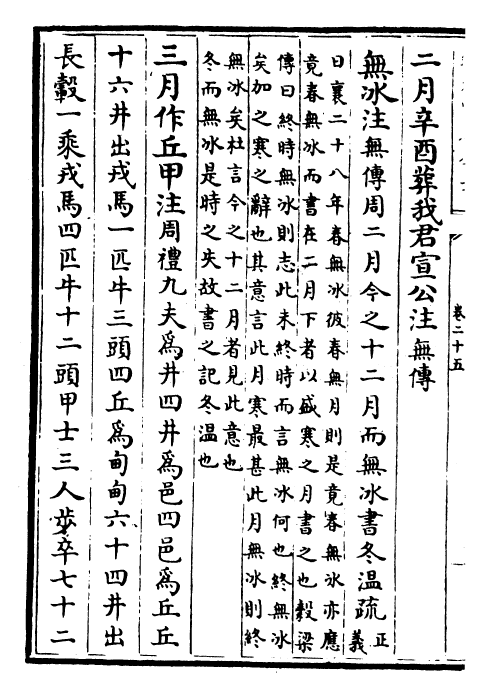 卷二十五
二月辛酉葬我君宣公注無傳
無冰注無傳周二月今之十二月而無冰書冬温疏正義
日襄二十八年春無冰彼春無月則是竟春無冰亦應
竟春無冰而書在二月下者以盛寒之月書之也穀梁
傳曰終時無冰則志此未終時而言無冰何也終無冰
矣加之寒之辭也其意言此月寒最甚此月無冰則終
無冰矣杜言今之十二月者見此意也
冬而無冰是時之失故書之記冬温也
三月作丘甲注周禮九夫為井四井為邑四邑為丘丘
十六井出戎馬一匹牛三頭四丘為甸甸六十四井出
長轂一乘戎馬四匹牛十二頭甲士三人歩卒七十二